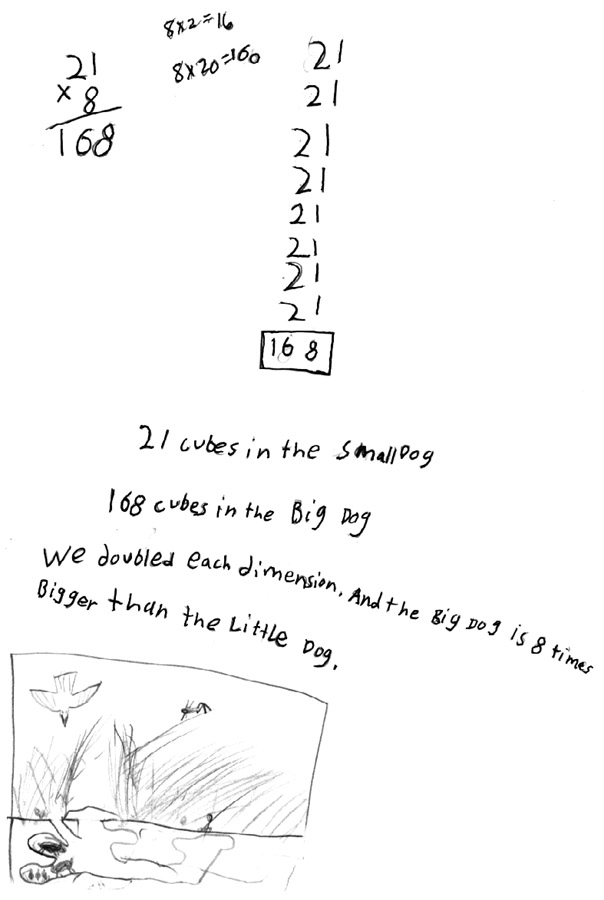 8x2=16
8x20=160
21
x 8
168
21
21
21
21
21
21
21
21
168
21 cubes in the Small Dog
168 cubes in the Big Dog
We doubled each dimension, And the Big Dog is 8 times
Bigger than the Little Dog.